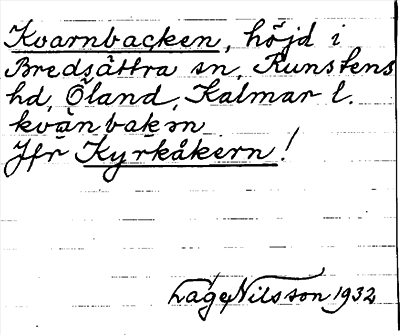 Kvarnbacken, höjd i
Bredsättra sn, Runstens
hd, Öland, Kalmar l.
kvänbakən
Jfr Kyrkåkern!
Lage Nilsson 1932